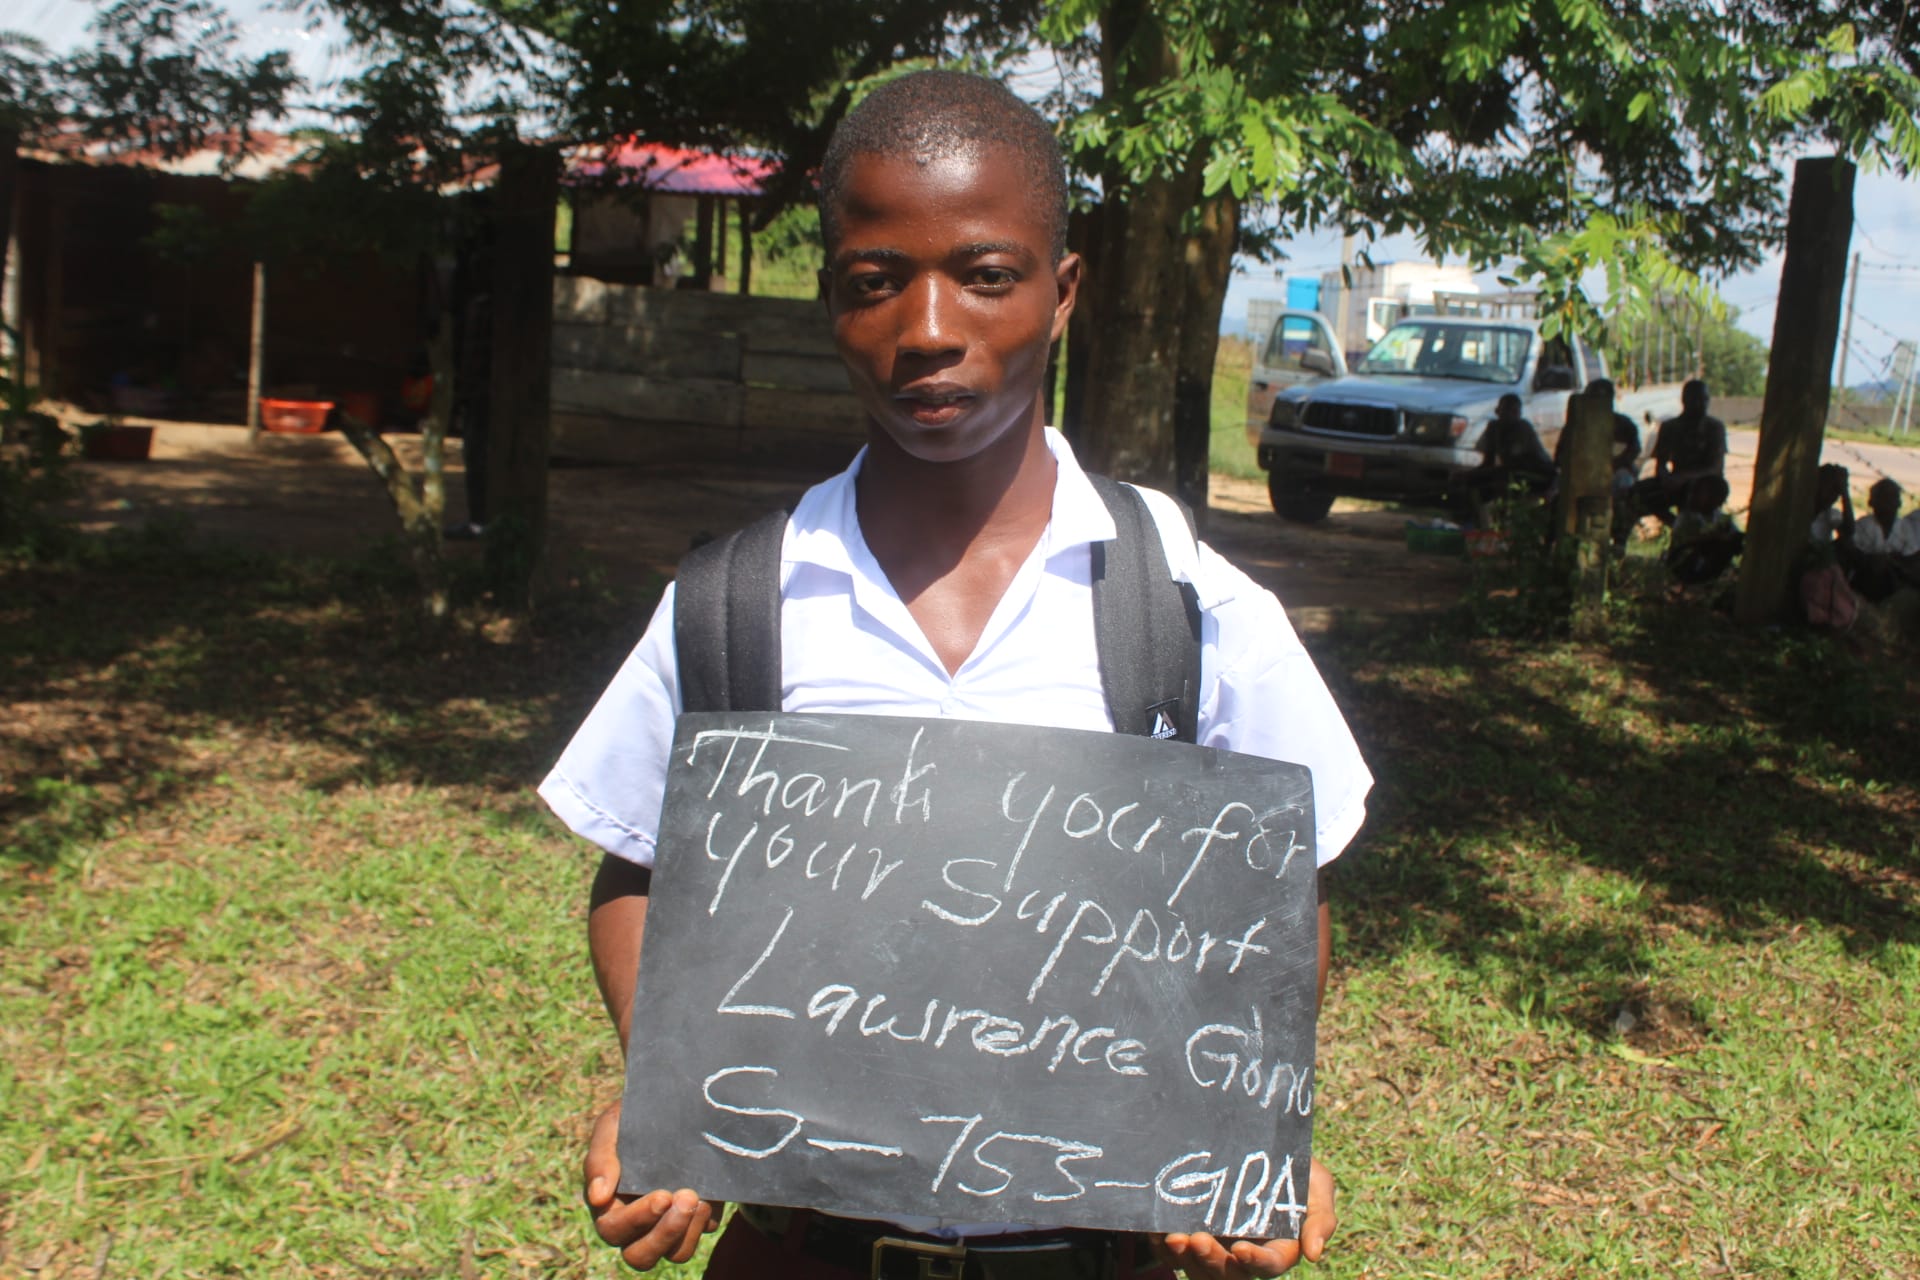 Thank you for
your Support
Lawrence Gonu
S-753-GBA